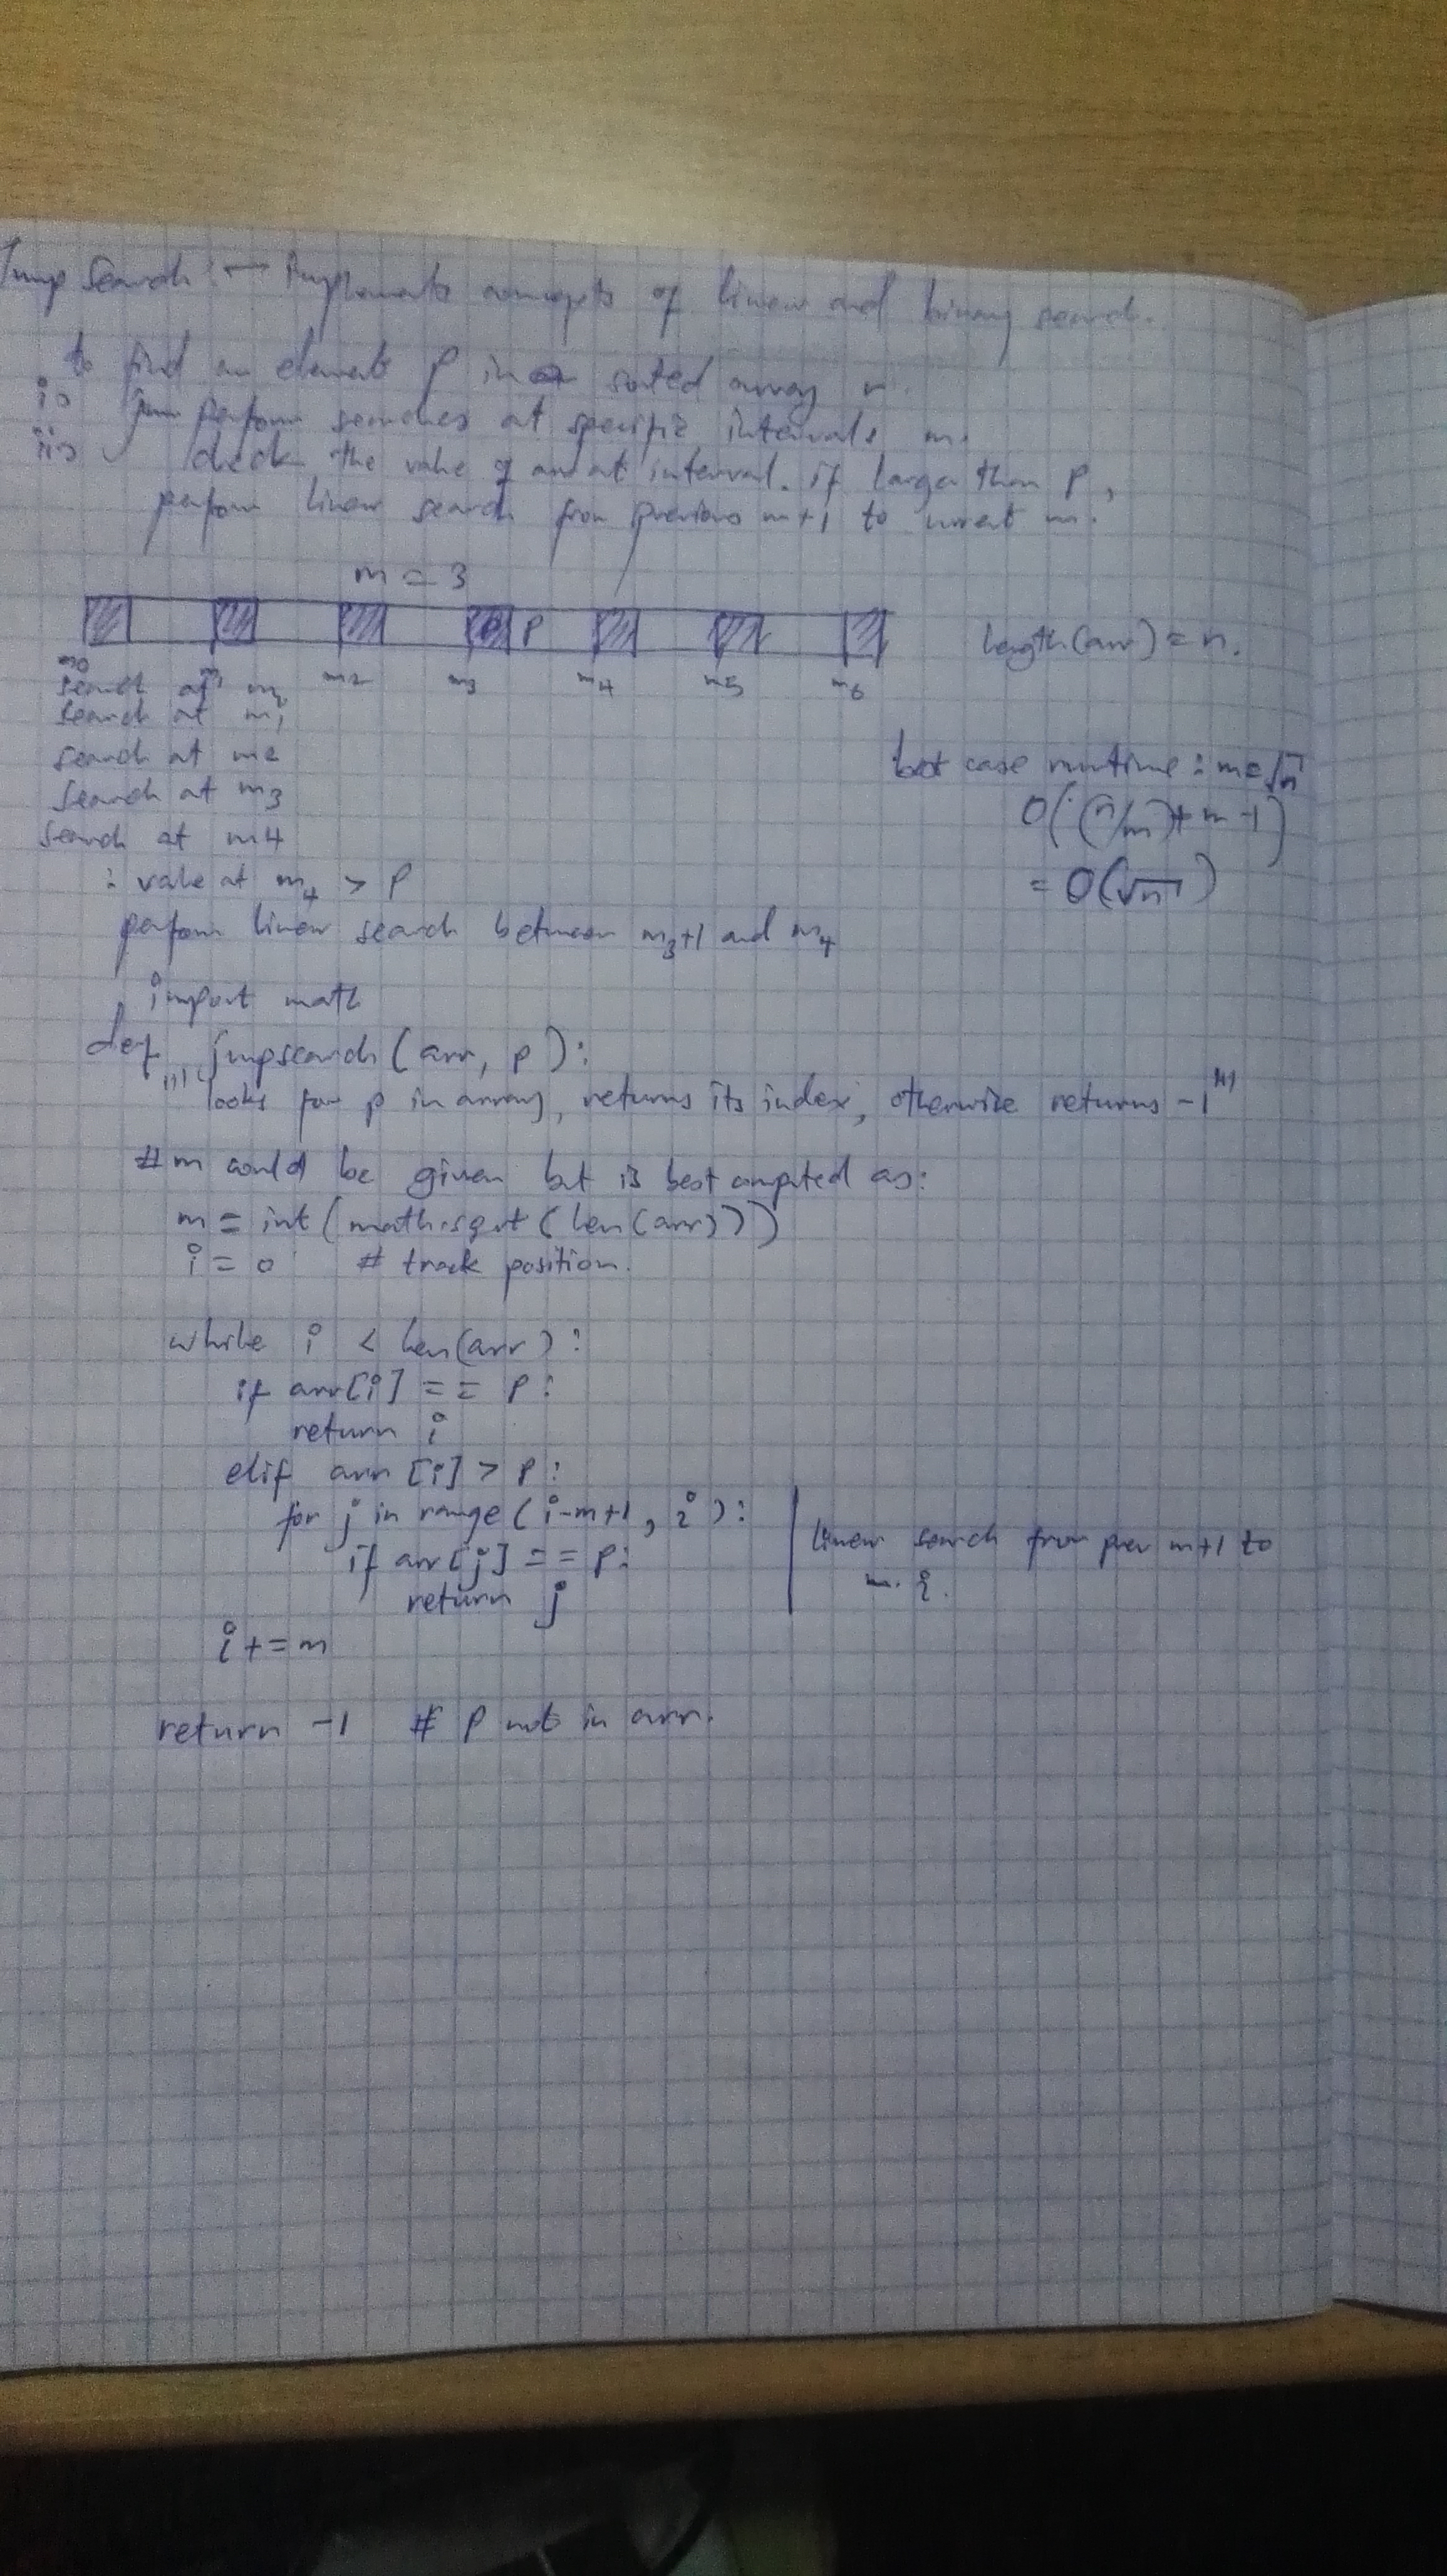 Jump Search :- Implements concepts of linear and binary search.
to find an element p in sorted array n.
i> perform searches at specific intervals m.
ii> check the value of arr at interval. if larger than p,
perform linear search from previous m+1 to current m.
m = 3
P
length(arr) = n.
m0 m1 m2 m3 m4 m5 m6
search at m0
search at m1
search at m2
search at m3
search at m4
: value at m4 > p
perform linear search between m3+1 and m4
best case runtime : m=√n
O((n/m)+m-1)
= O(√n)
import math
def jumpsearch(arr, p):
"""looks for p in array, returns its index, otherwise returns -1"""
# m could be given but is best computed as:
m = int(math.sqrt(len(arr)))
i = 0 # track position.
while i < len(arr):
if arr[i] == p:
return i
elif arr[i] > p:
for j in range(i-m+1, i):
if arr[j] == p:
return j
linear search from prev m+1 to
m. i.
i += m
return -1 # p not in arr.